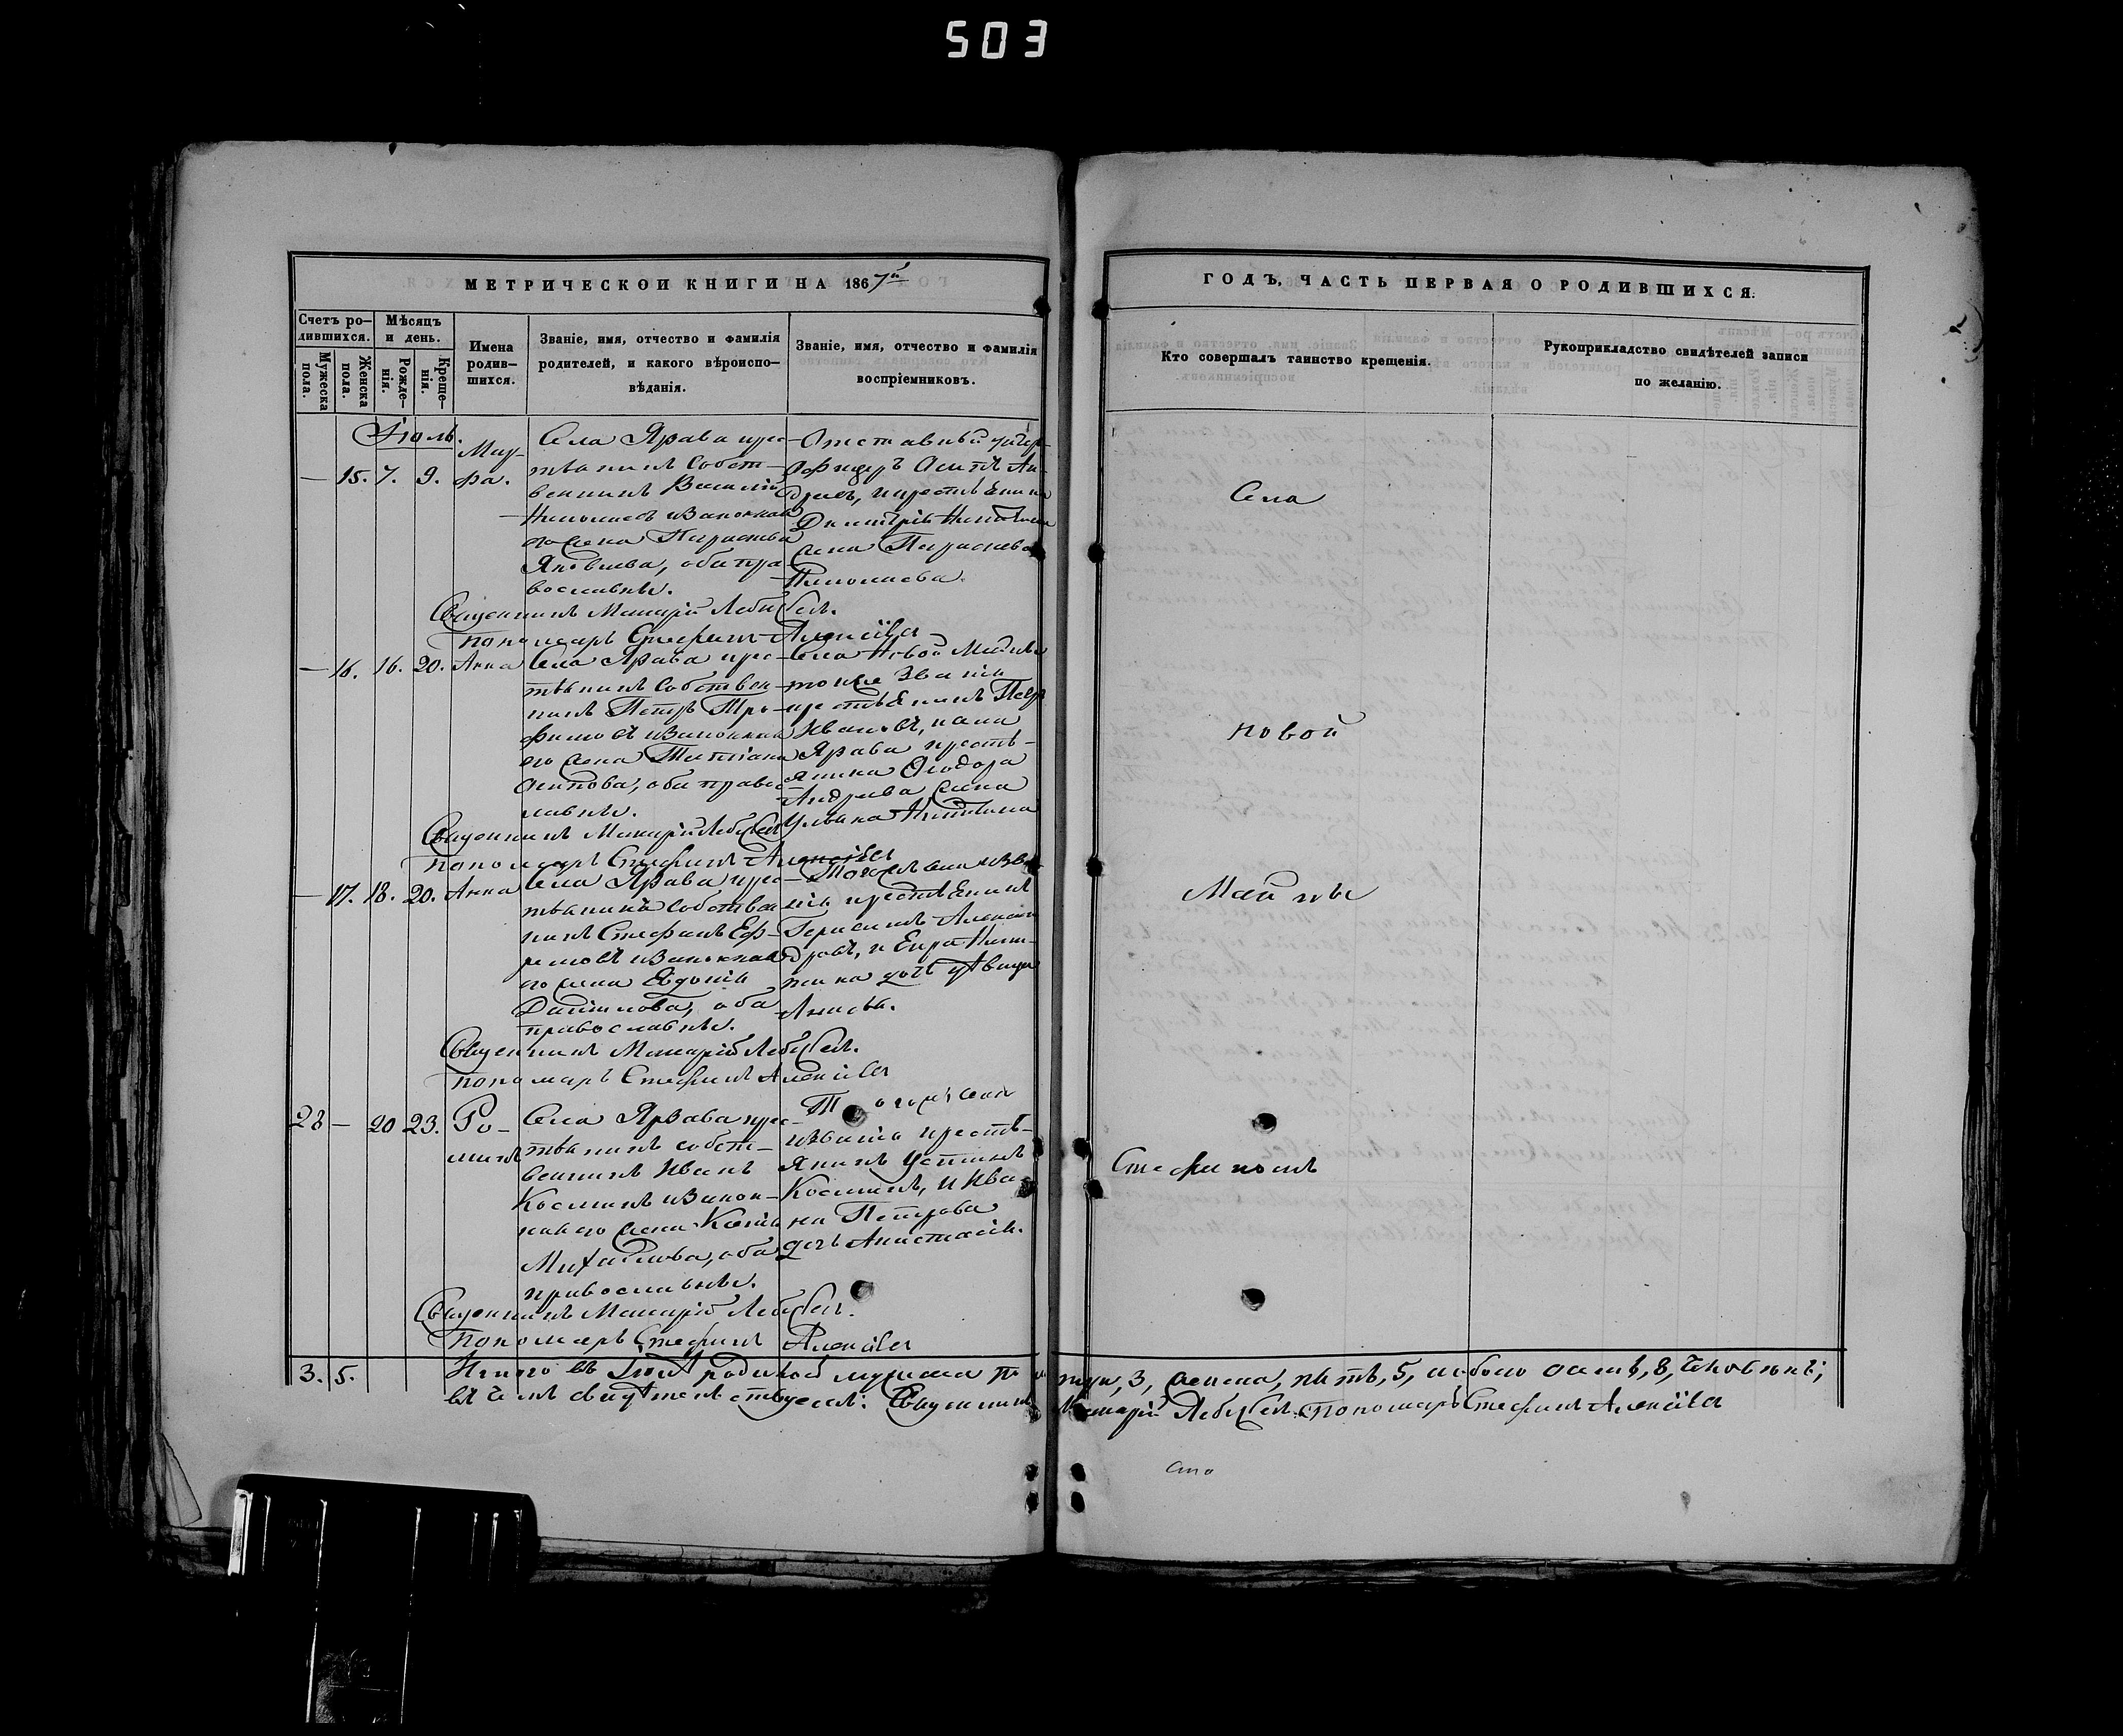 503
МЕТРИЧЕСКОЙ КНИГИ НА 1867й
ГОДЪ, ЧАСТЬ ПЕРВАЯ О РОДИВШИХСЯ.
Счетъ ро-
дившихся.
Мужеска
пола.
Женска
пола.
Мѣсяцъ
и день.
Рожде-
нія.
Креще-
нія.
Имена
родив-
шихся.
Званіе, имя, отчество и фамилія
родителей, и какого вѣроиспо-
вѣданія.
Званіе, имя, отчество и фамилія
воспріемниковъ.
Кто совершалъ таинство крещенія.
Рукоприкладство свидѣтелей записи
по желанію.
Іюль.
— 15. 7. 9.
Мар-
фа.
Села Ярава крес-
тьянинъ собст-
венникъ Василій
Николаевъ и законная
его жена Параскева
Яковлева, оба пра-
вославные.
Отставной унтер-
офицеръ Осипъ Ан-
дреевъ, и крестьянина
Димитрія Никитина
жена Параскева
Николаева.
Священникъ Макарій Лебедевъ.
Пономарь Стефанъ Алексѣевъ
— 16. 16. 20. Анна
Села Ярава крес-
тьянинъ собствен-
никъ Петръ Тро-
фимовъ и законная
его жена Татіана
Осипова, оба правос-
лавные.
Села Новой Маины
тоже званія
крестьянинъ Петръ
Ивановъ, и села
Ярава кресть-
янина Ѳеодора
Андреева жена
Ульяна Никитина
Священникъ Макарій Лебедевъ
Пономарь Стефанъ Алексѣевъ
— 17. 18. 20. Анна
Села Ярава крес-
тьянинъ собствен-
никъ Стефанъ Еф-
ремовъ и законная
его жена Евдокія
Даниилова, оба
православные.
Того же села и зва-
нія крестьянинъ
Герасимъ Алексан-
дровъ, и Егора Ники-
тина дочь дѣвица
Анисья.
Священникъ Макарій Лебедевъ.
Пономарь Стефанъ Алексѣевъ
28 — 20 23.
Ро-
манъ
Села Ярава крес-
тьянинъ собст-
венникъ Иванъ
Косминъ и закон-
ная его жена Ксенія
Михайлова, оба
православные.
Того же села
и званія кресть-
янинъ Устинъ
Косминъ, и Ива-
на Петрова
дочь Анастасія.
Священникъ Макарій Лебедевъ.
Пономарь Стефанъ Алексѣевъ
Села
Новой
Майны
Стефаномъ
3. 5. Итого въ Іюлѣ родилось мужеска пола три, 3, женска, пять, 5, обоего осмь, 8, человѣкъ;
въ чемъ свидѣтельствуемъ: Священникъ Макарій Лебедевъ. Пономарь Стефанъ Алексѣевъ